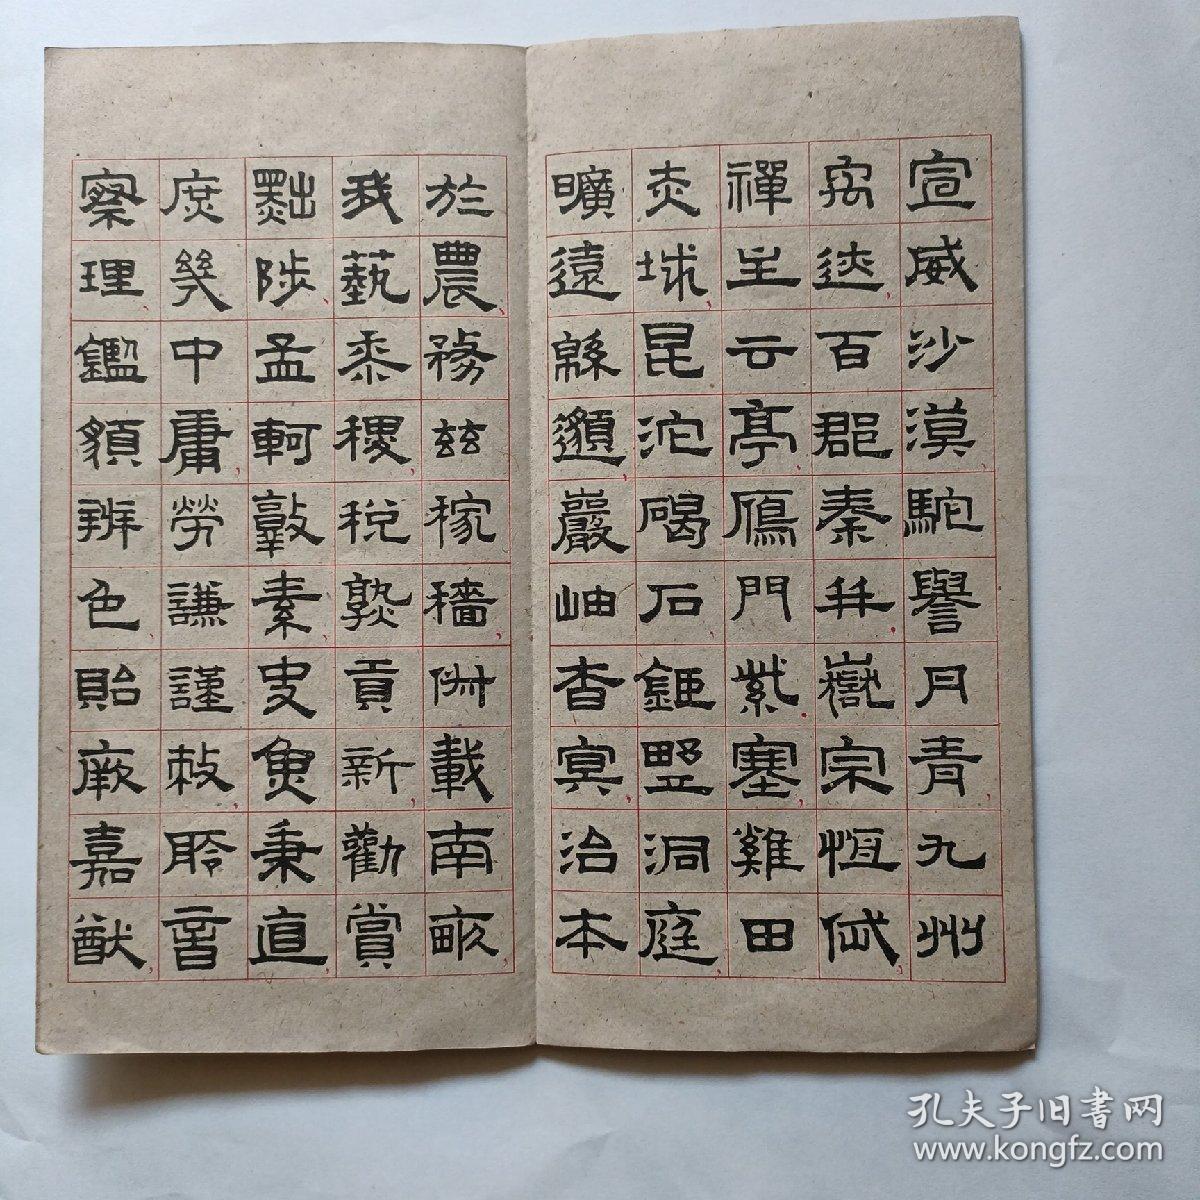 宣威沙漠馳譽丹青九州
禹跡百郡秦并嶽宗恆岱
禪主云亭鴈門紫塞雞田
赤城昆池碣石鉅野洞庭
曠遠緜邈巖岫杳冥治本
於農務茲稼穡俶載南畝
我藝黍稷稅熟貢新勸賞
黜陟孟軻敦素史魚秉直
庶幾中庸勞謙謹敕聆音
察理鑑貌辨色貽厥嘉猷
孔夫子旧書网
www.kongfz.com